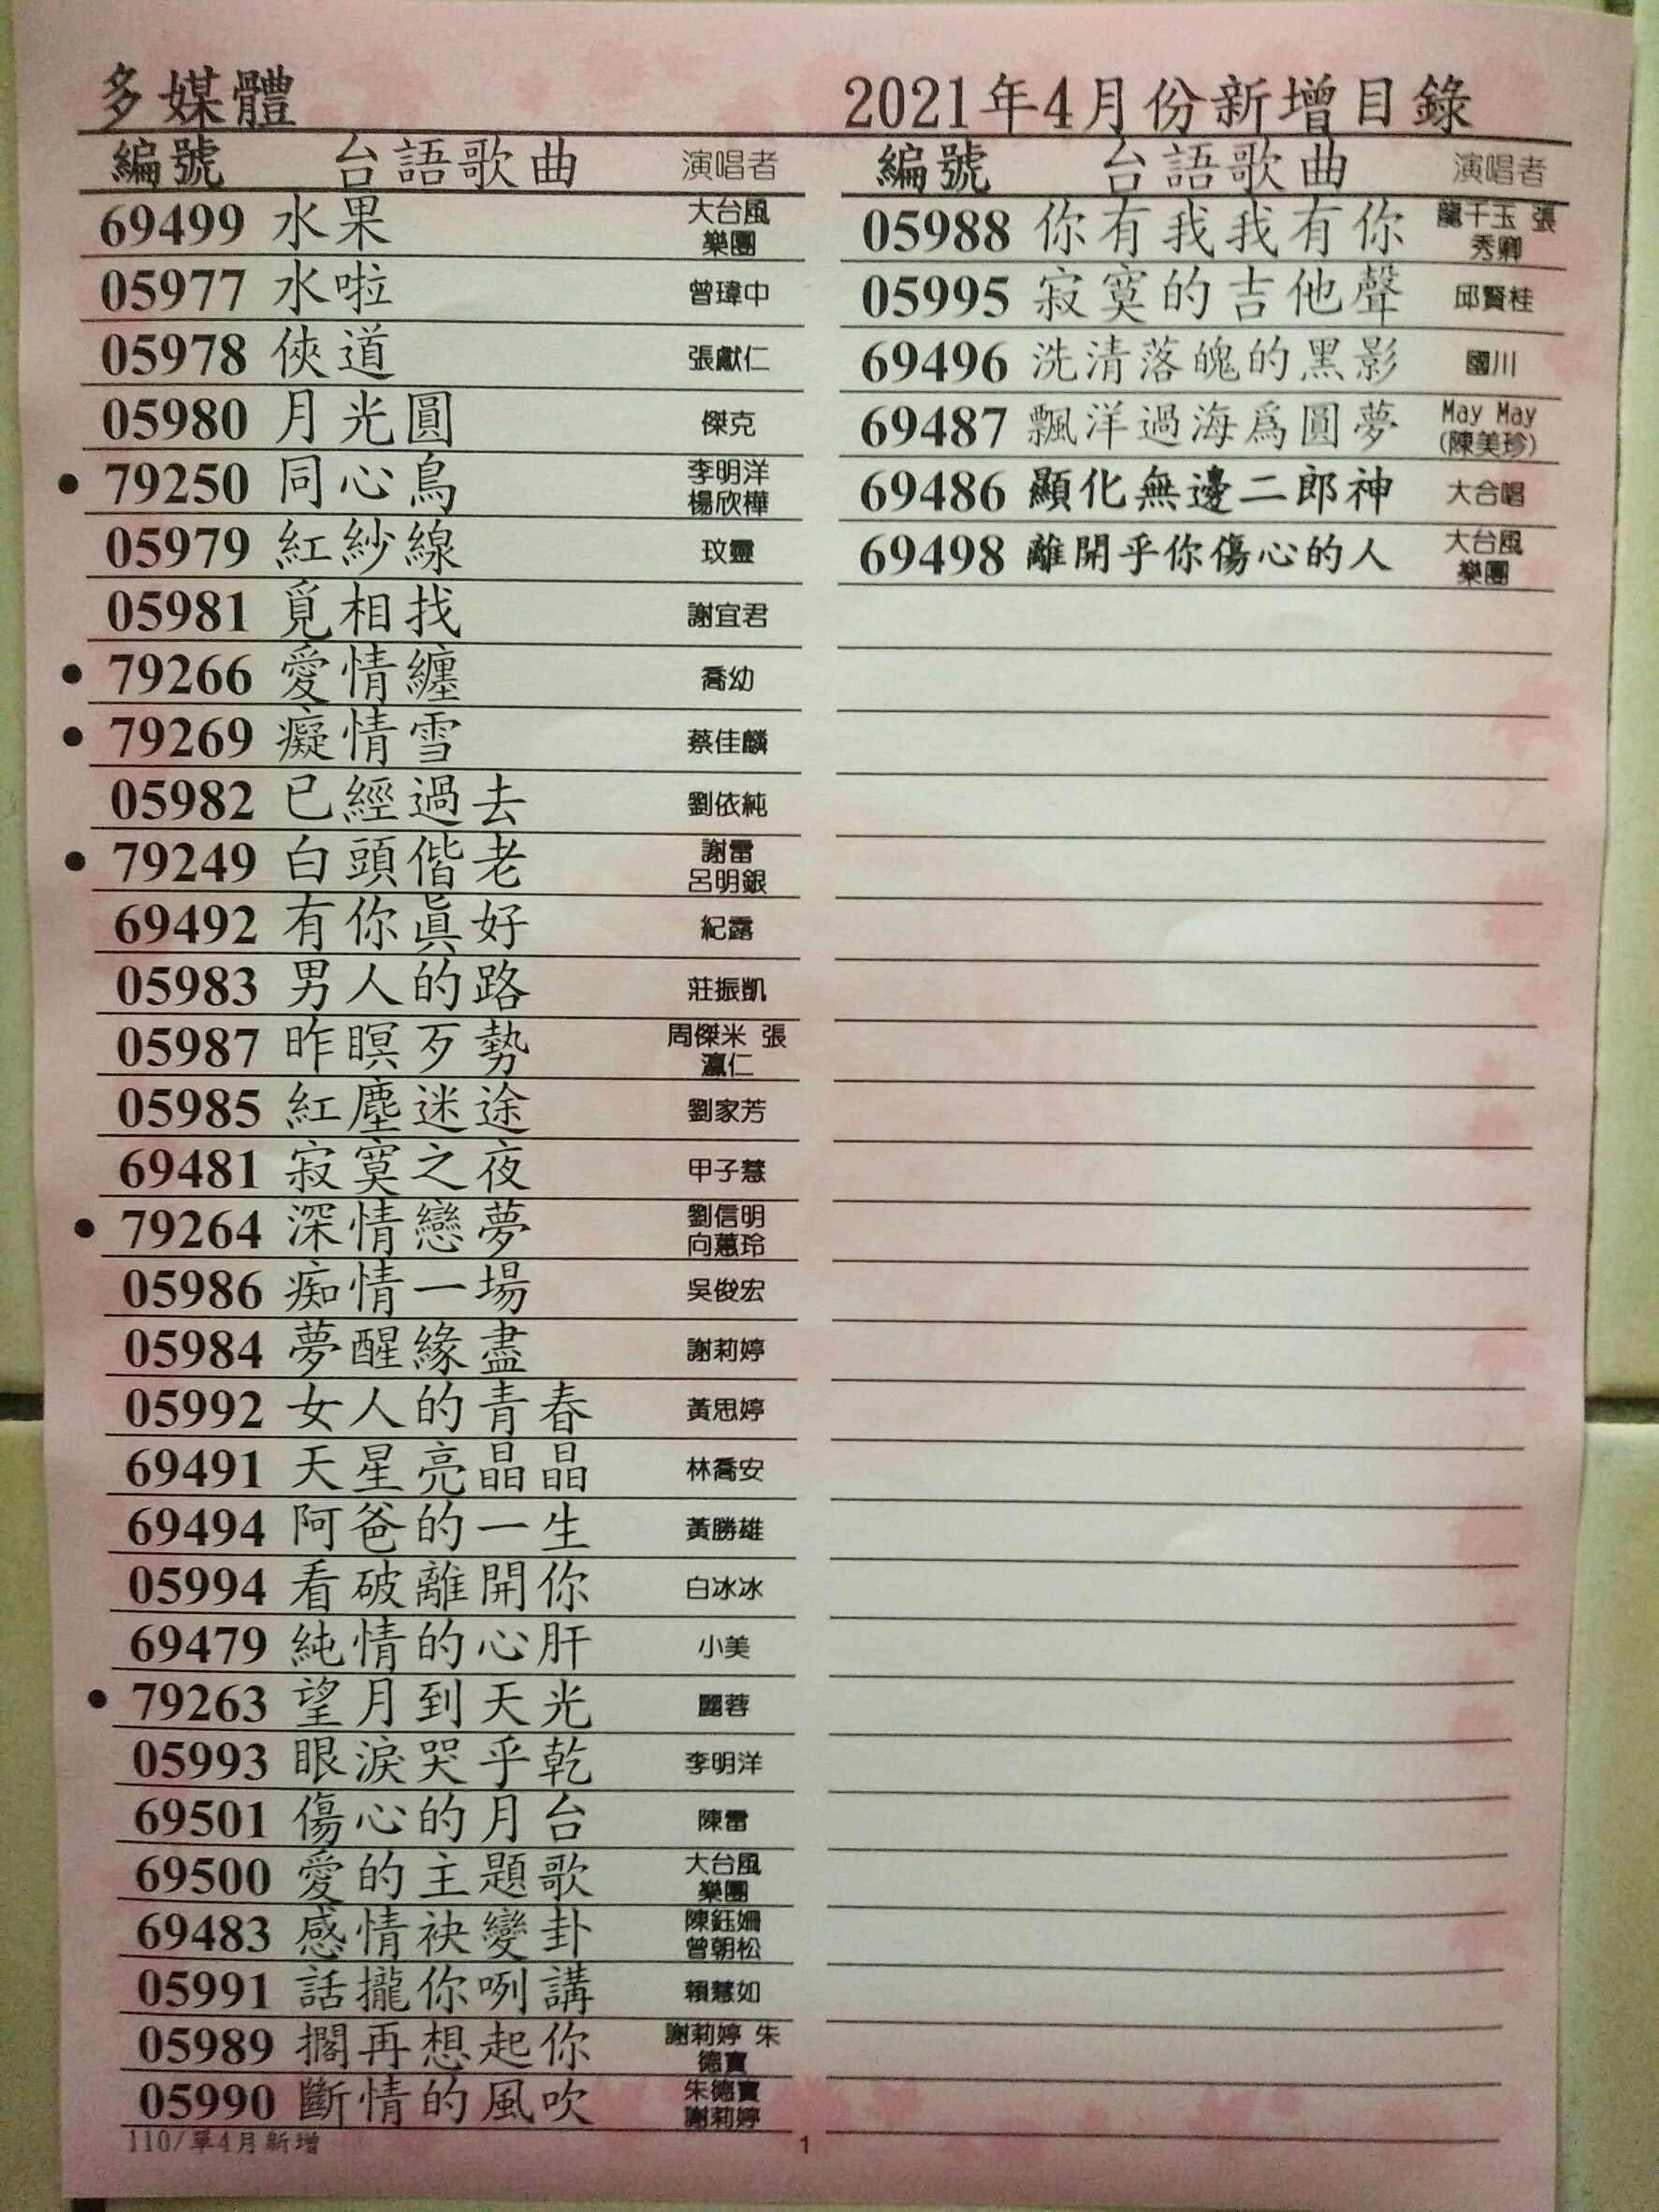 多媒體 2021年4月份新增目錄
編號 台語歌曲 演唱者
69499 水果 大台風樂團
05977 水啦 曾瑋中
05978 俠道 張獻仁
05980 月光圓 傑克
● 79250 同心鳥 李明洋 楊欣樺
05979 紅紗線 玟靈
05981 覓相找 謝宜君
● 79266 愛情纏 喬幼
● 79269 癡情雪 蔡佳麟
05982 已經過去 劉依純
● 79249 白頭偕老 謝雷 呂明銀
69492 有你眞好 紀露
05983 男人的路 莊振凱
05987 昨暝歹勢 周傑米 張瀛仁
05985 紅塵迷途 劉家芳
69481 寂寞之夜 甲子慧
● 79264 深情戀夢 劉信明 向蕙玲
05986 痴情一場 吳俊宏
05984 夢醒緣盡 謝莉婷
05992 女人的青春 黃思婷
69491 天星亮晶晶 林喬安
69494 阿爸的一生 黃勝雄
05994 看破離開你 白冰冰
69479 純情的心肝 小美
● 79263 望月到天光 麗蓉
05993 眼淚哭乎乾 李明洋
69501 傷心的月台 陳雷
69500 愛的主題歌 大台風樂團
69483 感情袂變卦 陳鈺姍 曾朝松
05991 話攏你咧講 賴慧如
05989 擱再想起你 謝莉婷 朱德寶
05990 斷情的風吹 朱德寶 謝莉婷
編號 台語歌曲 演唱者
05988 你有我我有你 龍千玉 張秀卿
05995 寂寞的吉他聲 邱賢桂
69496 洗清落魄的黑影 國川
69487 飄洋過海爲圓夢 May May (陳美珍)
69486 顯化無邊二郎神 大合唱
69498 離開乎你傷心的人 大台風樂團
110/單4月新增 1